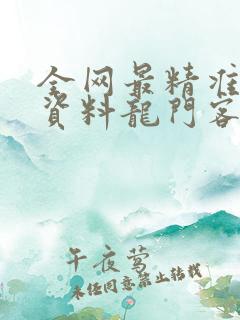 全网最精准
資料龍門客
午夜莺
未经同意禁止转载